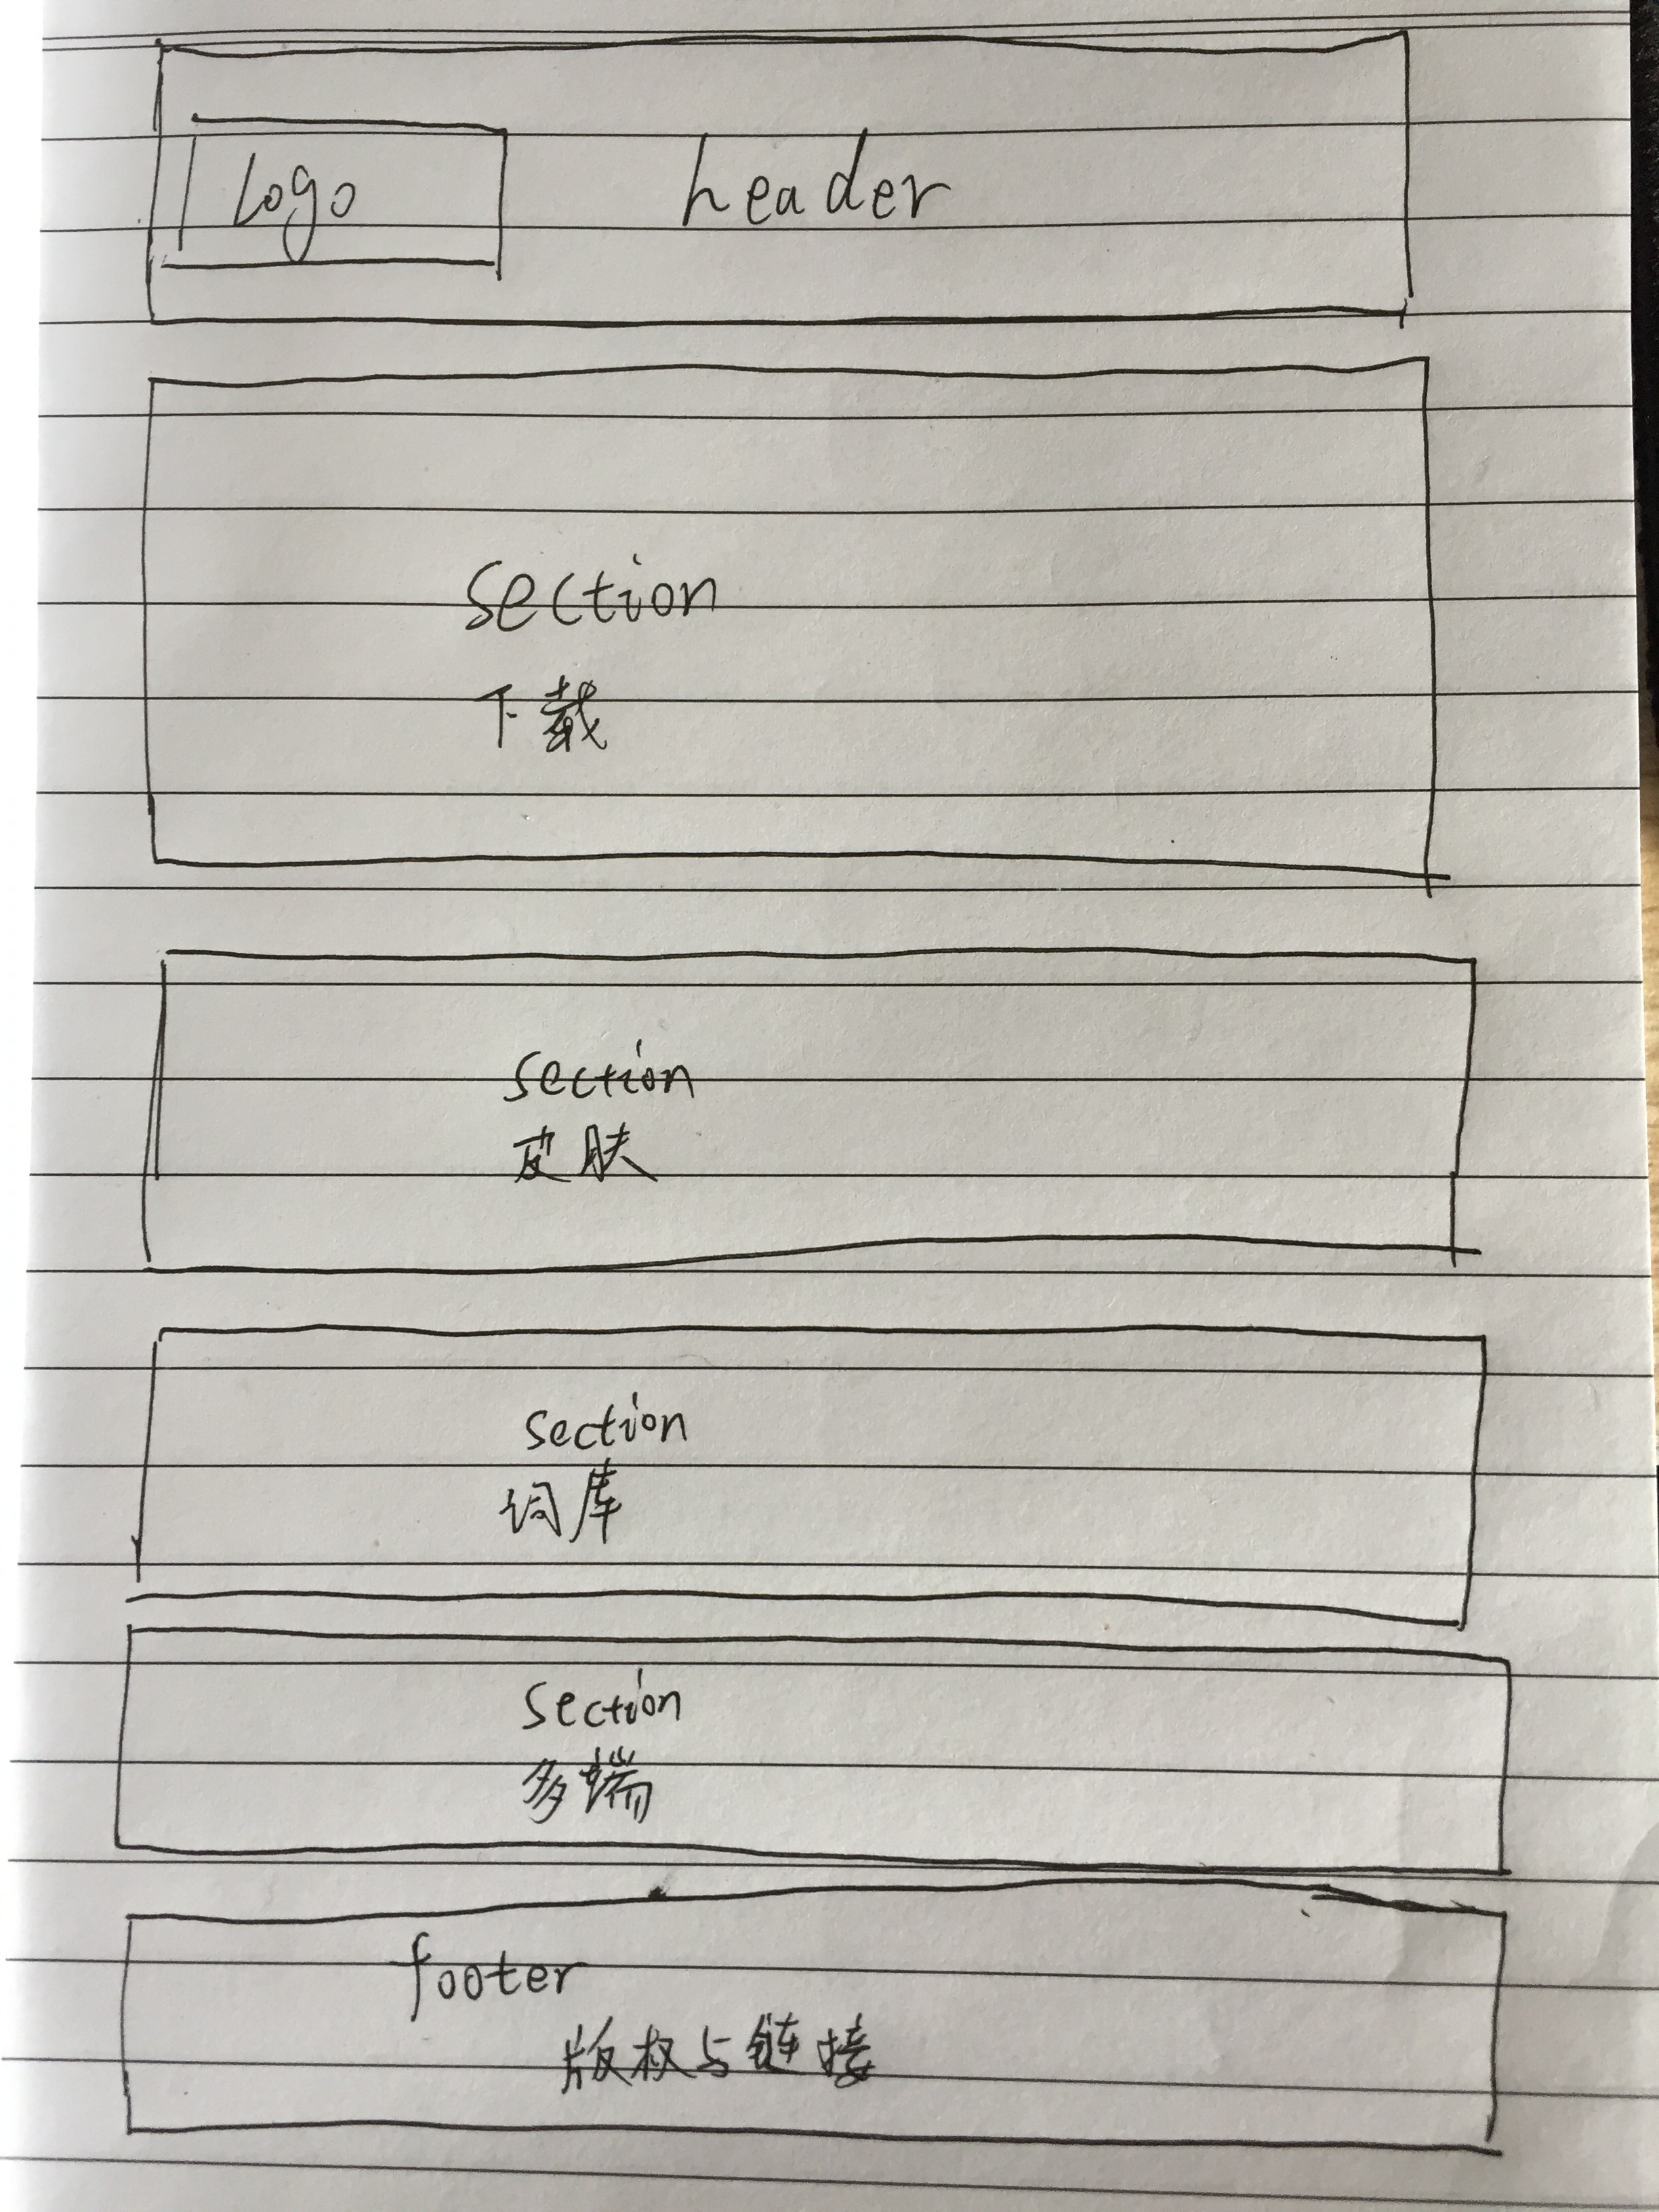 Logo
header
section
下载
section
皮肤
section
词库
section
多端
footer
版权与链接